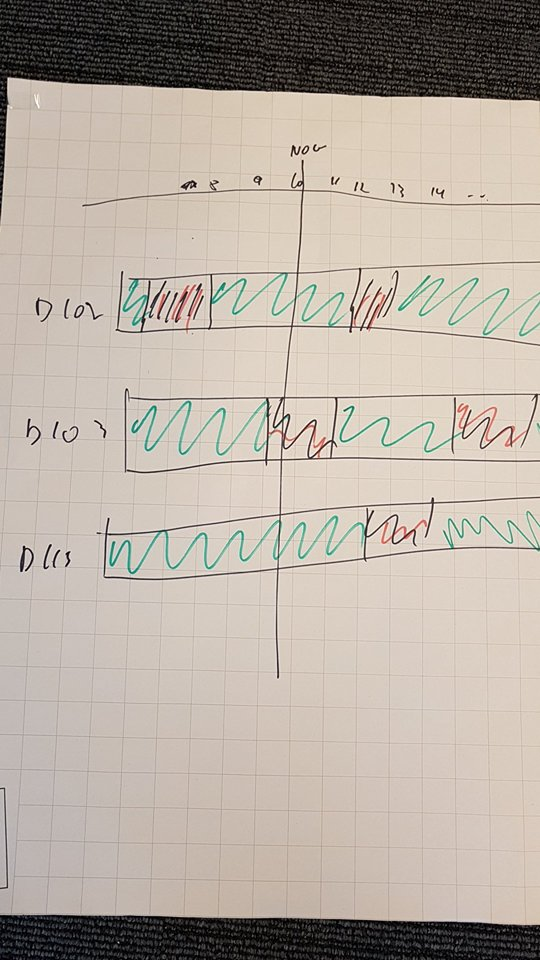 NOW
8 9 10 11 12 13 14 ...
D102
D103
D113